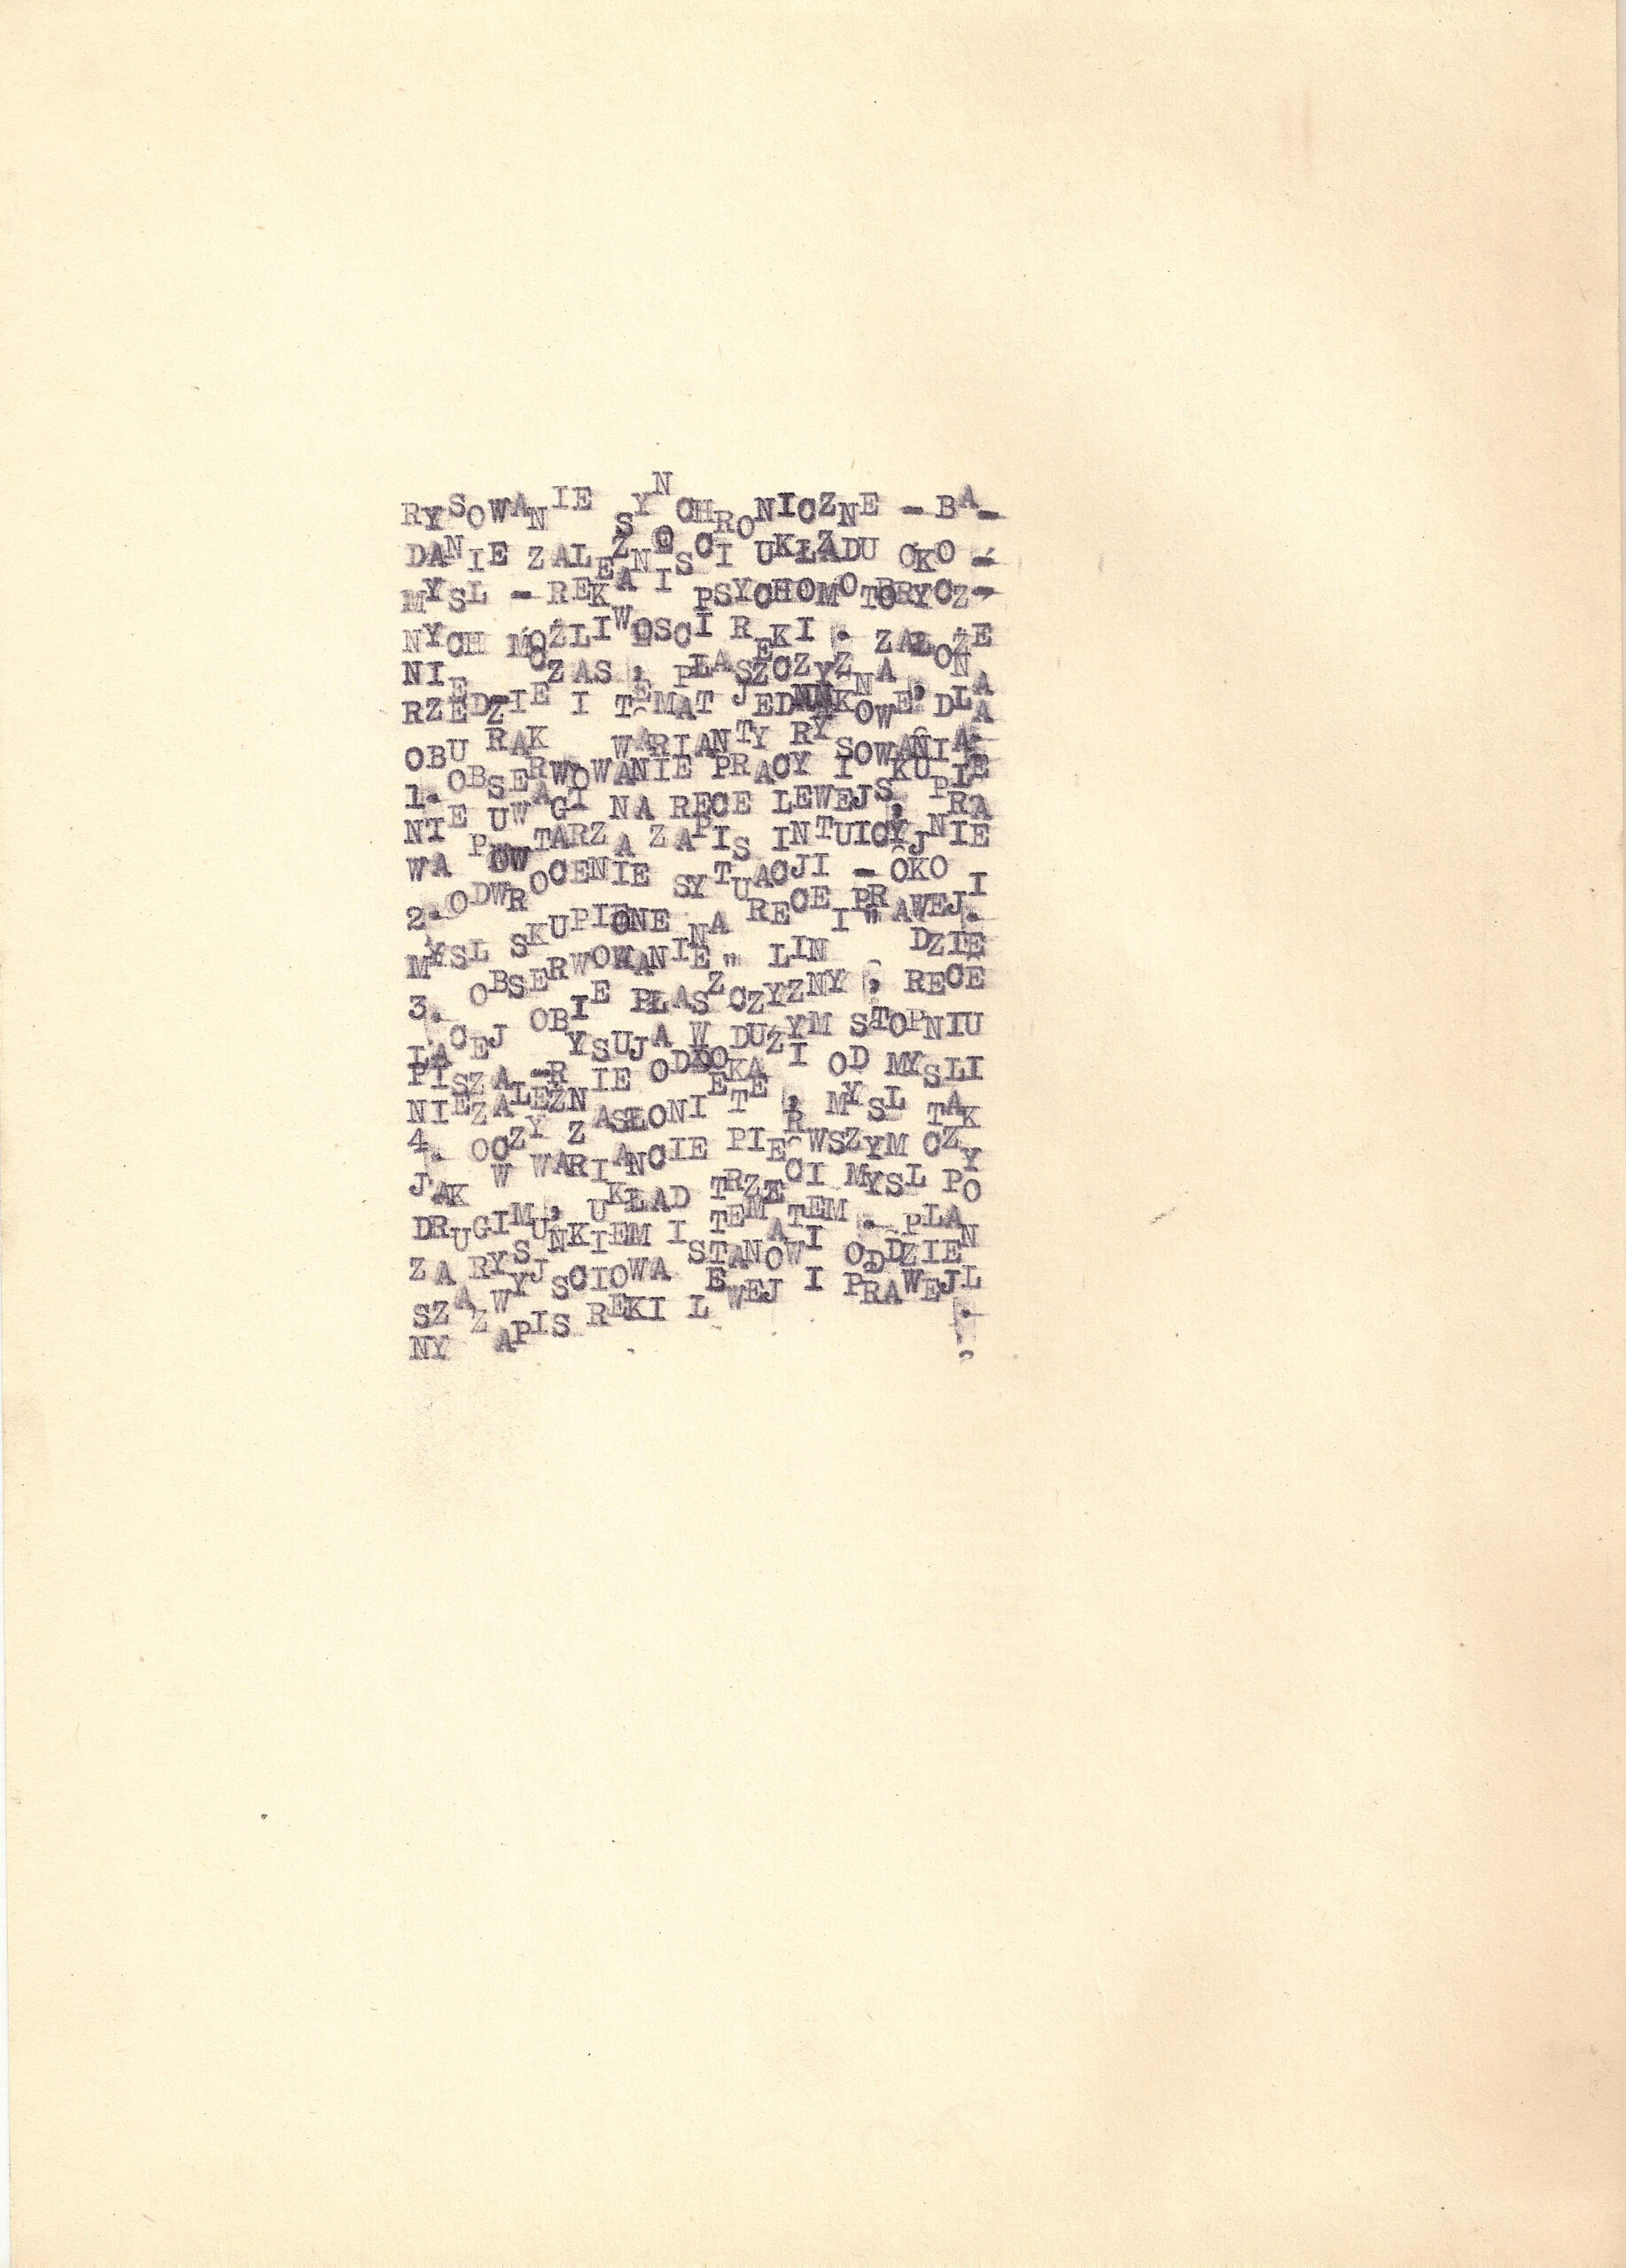 RYSOWANIE SYNCHRONICZNE - BA-
DANIE ZALEŻNOSCI UKŁADU OKO -
MYSL - REKA I PSYCHOMOTORYCZ-
NYCH MOŻLIWOSCI REKI . ZAŁOŻE
NIE CZAS , PŁASZCZYZNA , NA
RZEDZIE I TEMAT JEDNAKOWE DLA
OBU RAK WARIANTY RYSOWANIA
1. OBSERWOWANIE PRACY I SKUPIE
NIE UWAGI NA RECE LEWEJ , PRA
WA POWTARZA ZAPIS INTUICYJNIE
2. ODWROCENIE SYTUACJI - OKO I
MYSL SKUPIONE NA RECE PRAWEJ.
3. OBSERWOWANIE „ LINI " DZIE
LACEJ OBIE PŁASZCZYZNY , RECE
PISZA - RYSUJA W DUŻYM STOPNIU
NIEZALEŻNIE OD OKA I OD MYSLI
4. OCZY ZASŁONIETE , MYSL TAK
JAK W WARIANCIE PIERWSZYM CZY
DRUGIM , UKŁAD TRZECI MYSL PO
ZA RYSUNKIEM I TEMATEM . PLAN
SZA WYJSCIOWA STANOWI ODDZIEL
NY ZAPIS REKI LEWEJ I PRAWEJ .